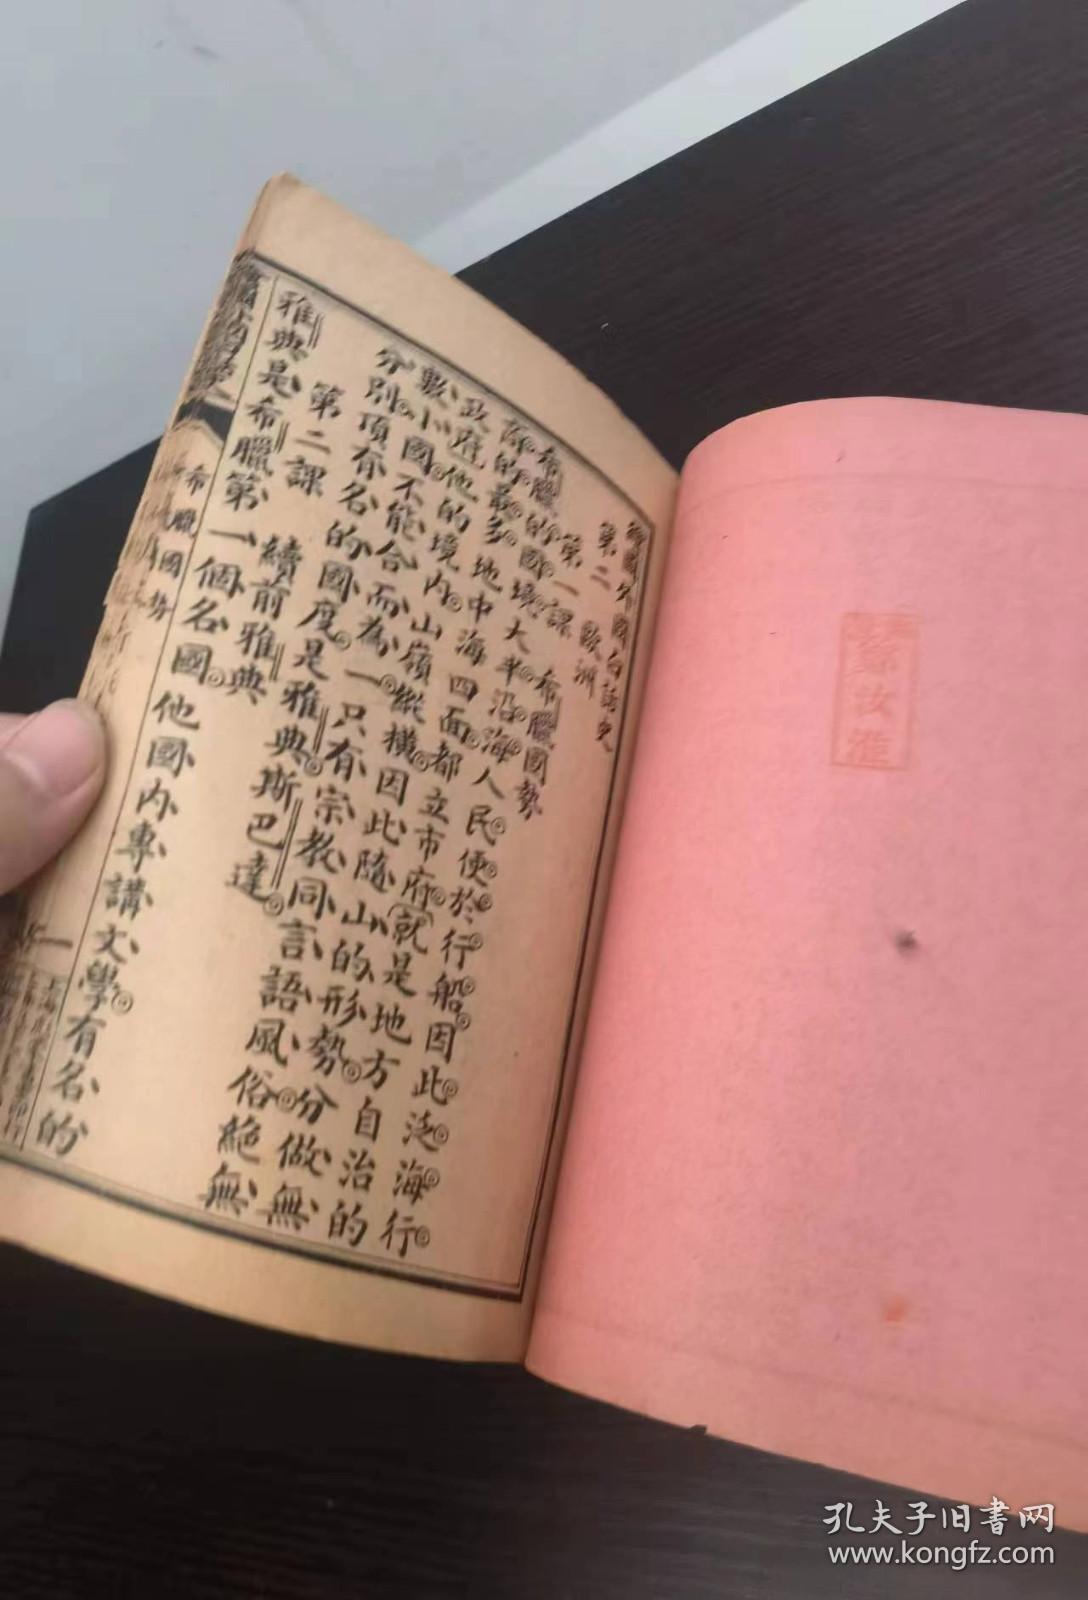 繪圖外國白話史
第二 歐洲
第一課 希臘國勢
希臘的國境大半沿海人民便於行船因此泛海行
商的最多地中海四面都立市府就是地方自治的
政府他的境内山嶺縱橫因此隨山的形勢分做無
數小國不能合而為一只有宗教同言語風俗絶無
分別頂有名的國度是雅典斯巴達
第二課 續前雅典
雅典是希臘第一個名國他國内專講文學有名的
希臘國勢
一
上海
汝淮
孔夫子旧書网
www.kongfz.com